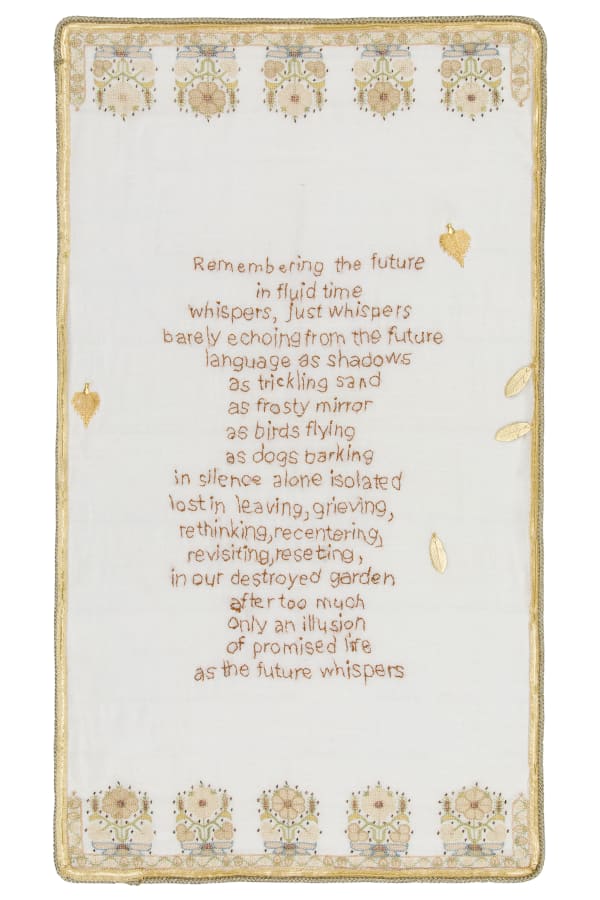 Remembering the future
in fluid time
whispers, just whispers
barely echoing from the future
language as shadows
as trickling sand
as frosty mirror
as birds flying
as dogs barking
in silence alone isolated
lost in leaving, grieving,
rethinking, recentering,
revisiting, reseting,
in our destroyed garden
after too much
only an illusion
of promised life
as the future whispers